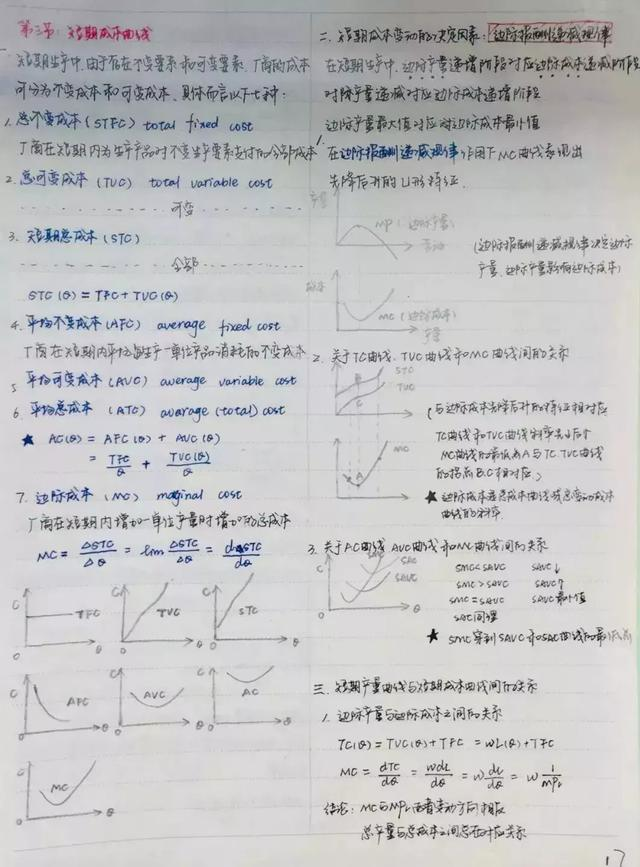 第三节：短期成本曲线
短期生产中,由于存在不变要素和可变要素,厂商的成本
可分为不变成本和可变成本,具体有以下七种：
1. 总不变成本(STFC) total fixed cost
厂商在短期内为生产产品对不变生产要素支付的全部成本
2. 总可变成本(TVC) total variable cost
可变
3. 短期总成本(STC)
全部
STC(Q) = TFC + TVC(Q)
4. 平均不变成本(AFC) average fixed cost
厂商在短期内平均每生产一单位产品消耗的不变成本
5 平均可变成本(AVC) average variable cost
6. 平均总成本 (ATC) avarage (total) cost
★ AC(Q) = AFC(Q) + AVC(Q)
= TFC/Q + TVC(Q)/Q
7. 边际成本 (MC) marginal cost
厂商在短期内增加一单位产量时增加的总成本
MC = ΔSTC/ΔQ = lim ΔSTC/ΔQ = dSTC/dQ
C TFC Q O
C TVC Q O
C STC Q O
C AFC Q O
C AVC Q O
C AC Q O
C MC Q O
二、短期成本变动的决定因素：边际报酬递减规律
在短期生产中,边际产量递增阶段对应边际成本递减阶段
对际产量递减对应边际成本递增阶段
边际产量最大值对应对边际成本最小值
1 在边际报酬递减规律作用下MC曲线表现出
先降后升的U形特征.
产量
MP(边际产量)
劳动
(边际报酬递减规律决定边际
产量,边际产量影响边际成本)
成本
MC(边际成本)
产量
2. 关于TC曲线,TVC曲线和MC曲线间的关系
STC
TVC
B
C
MC
A
(与边际成本先降后升的特征相对应
TC曲线和TVC曲线斜率
MC曲线的最低点A与TC.TVC曲线
的拐点B.C相对应.)
★ 边际成本是总成本曲线或总变动成本
曲线的斜率.
3. 关于AC曲线 AVC曲线和MC曲线间的关系
C
SAC
SAVC
O
Q
SMC<SAVC SAVC↓
SMC>SAVC SAVC↑
SMC=SAVC SAVC最小值
SAC同理
★ SMC穿到SAVC和SAC曲线的最低点
三、短期产量曲线与短期成本曲线间的关系
1. 边际产量与边际成本之间的关系
TC(Q) = TVC(Q)+TFC = wL(Q)+TFC
MC = dTC/dQ = wdL/dQ = w dL/dQ = w 1/MPL
结论：MC与MPL两者变动方向相反
总产量与总成本之间存在对应关系
17